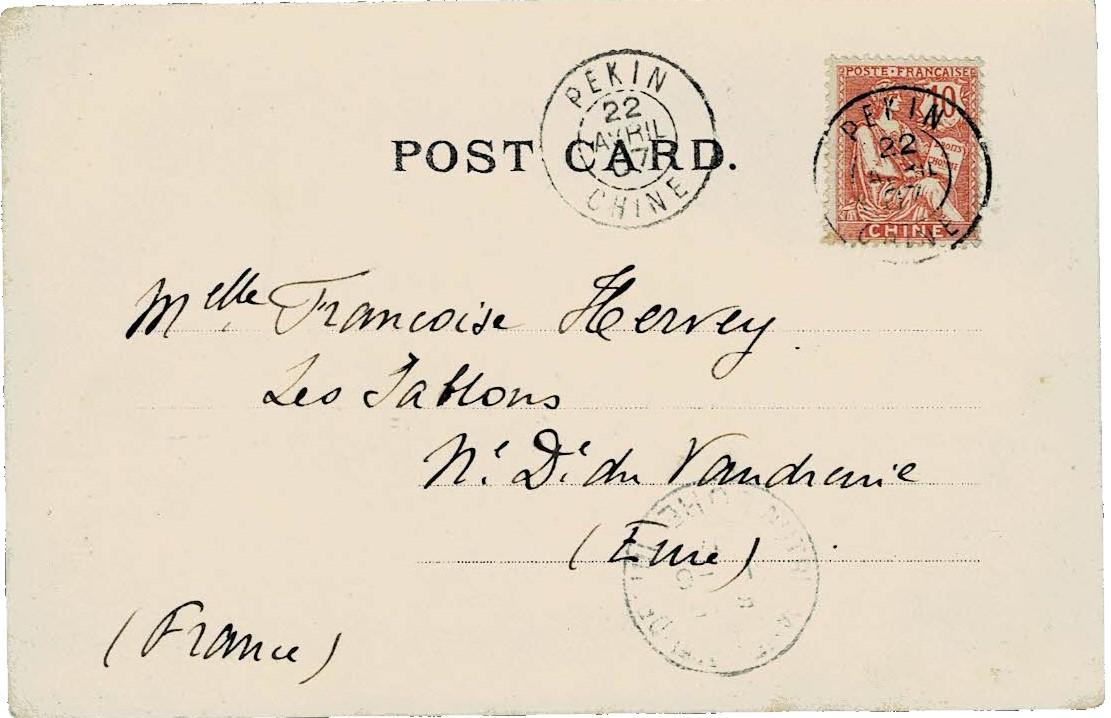 PEKIN
22
AVRIL
07
CHINE
POST CARD.
POSTE·FRANÇAISE
10
DROITS
HOMME
CHINE
PEKIN
22
CHINE
Melle Francoise Hervey
Les Sablons
Ne De du Vaudreuil
(Eure)
(France)